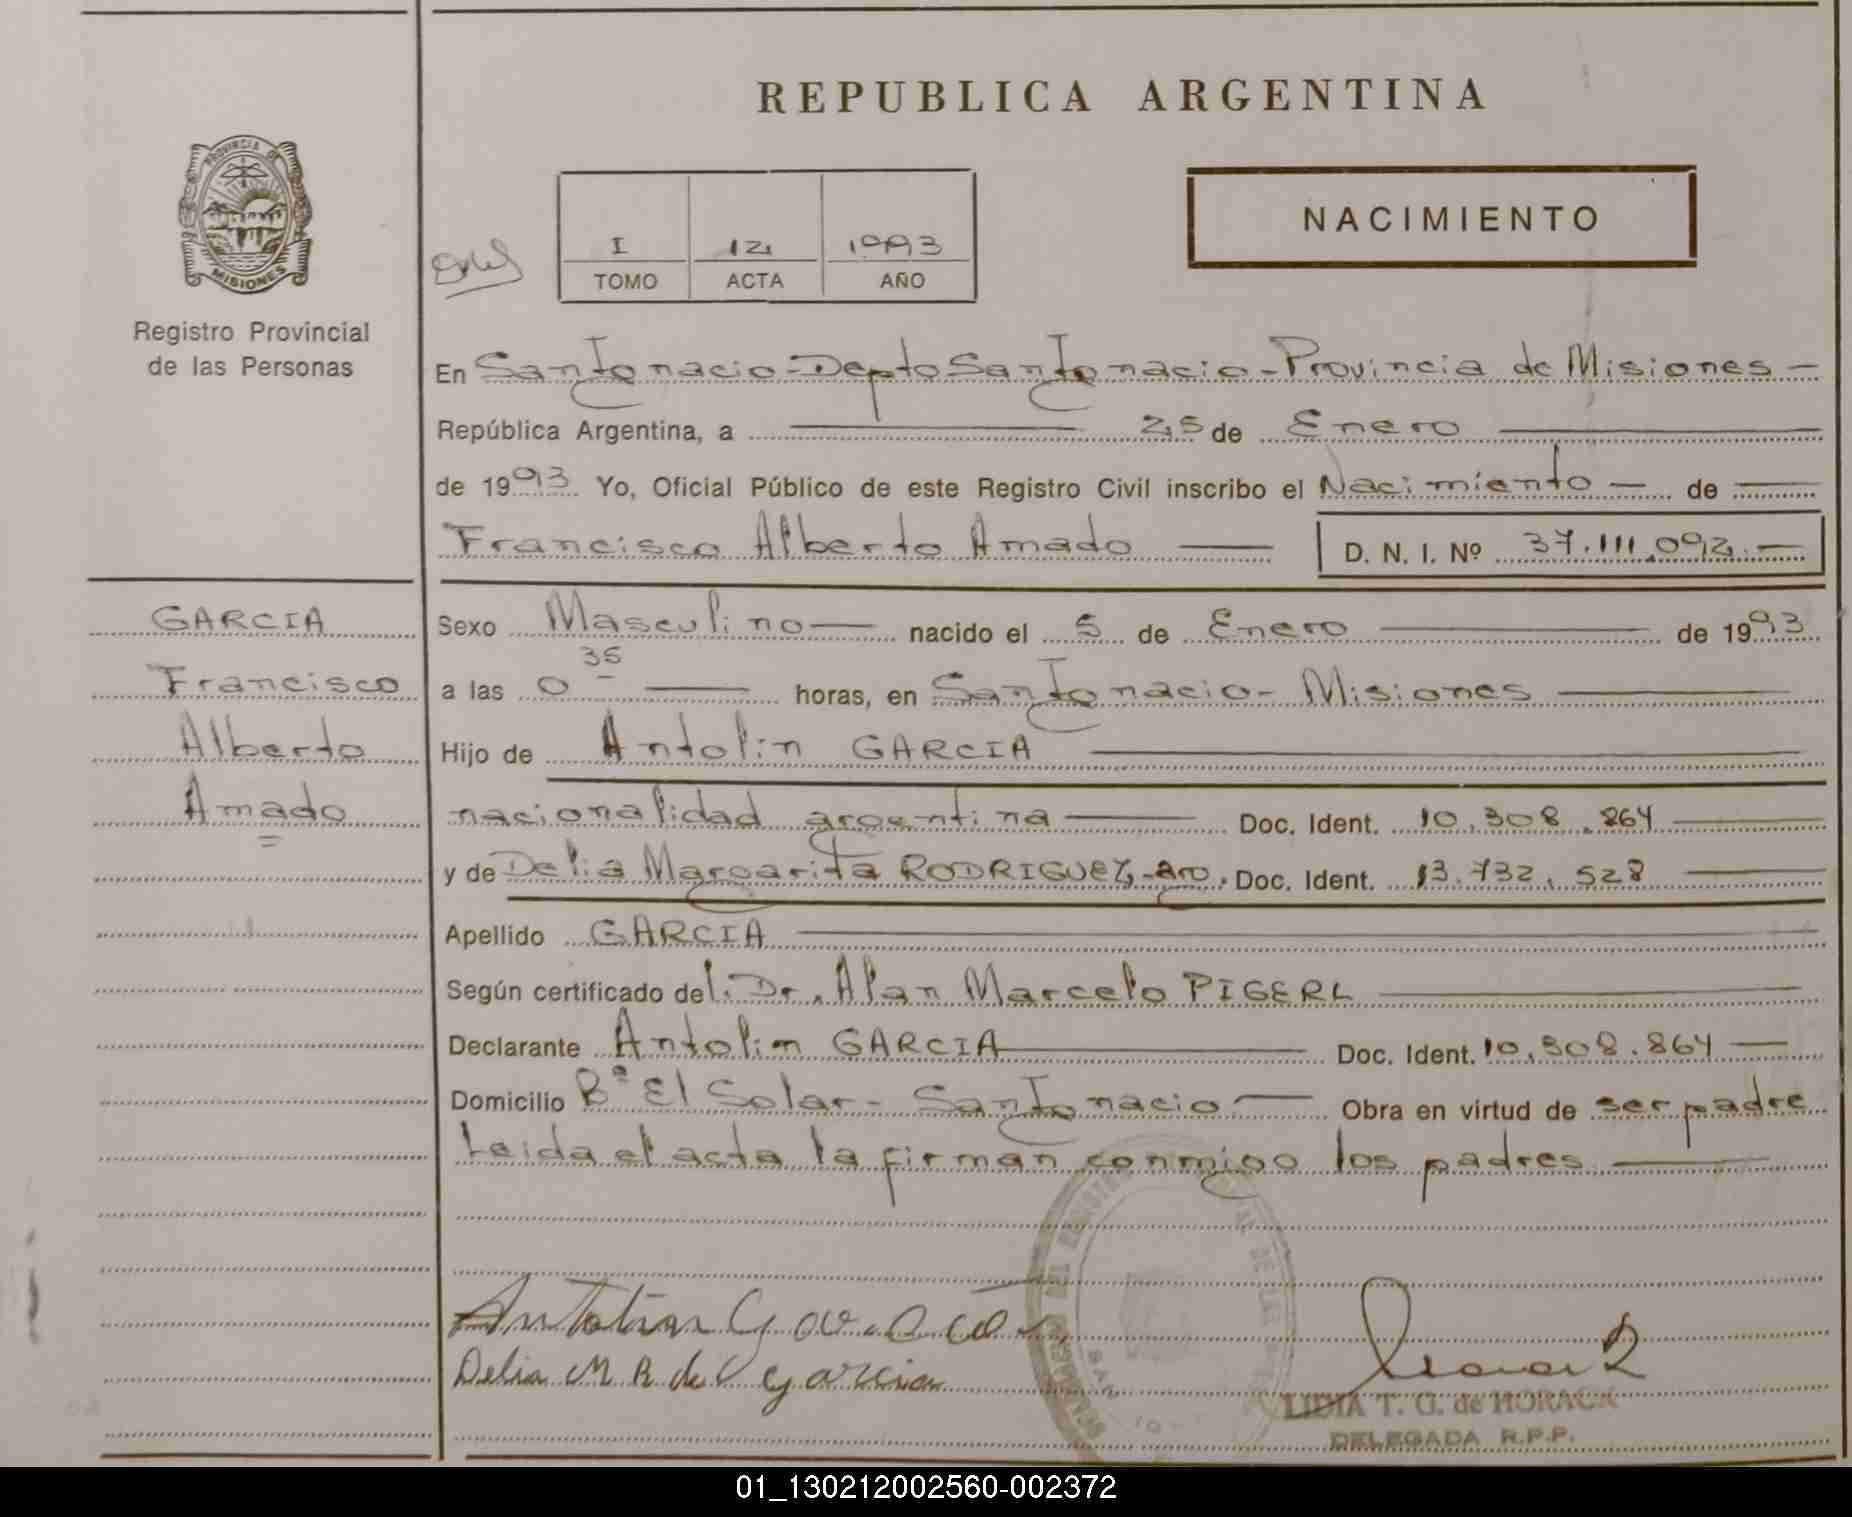 REPUBLICA ARGENTINA
PROVINCIA DE
MISIONES
Registro Provincial
de las Personas
I 12 1993
TOMO ACTA AÑO
NACIMIENTO
En San Ignacio - Depto San Ignacio - Provincia de Misiones -
República Argentina, a 25 de Enero
de 1993 Yo, Oficial Público de este Registro Civil inscribo el Nacimiento - de
Francisco Alberto Amado D. N. I. Nº 37.111.092.-
GARCIA
Francisco
Alberto
Amado
Sexo Masculino nacido el 5 de Enero de 1993
a las 0 35 horas, en San Ignacio - Misiones
Hijo de Antolin GARCIA
nacionalidad argentina Doc. Ident. 10.308.864
y de Delia Margarita RODRIGUEZ, arg. Doc. Ident. 13.732.528
Apellido GARCIA
Según certificado del Dr. Alan Marcelo PIGERL
Declarante Antolin GARCIA Doc. Ident. 10.308.864
Domicilio Bº El Solar - San Ignacio Obra en virtud de ser padre
Leida el acta la firman conmigo los padres
Antolin Garcia
Delia M R de Garcia
LIDIA T. G. de HORACK
DELEGADA R.P.P.
01_130212002560-002372